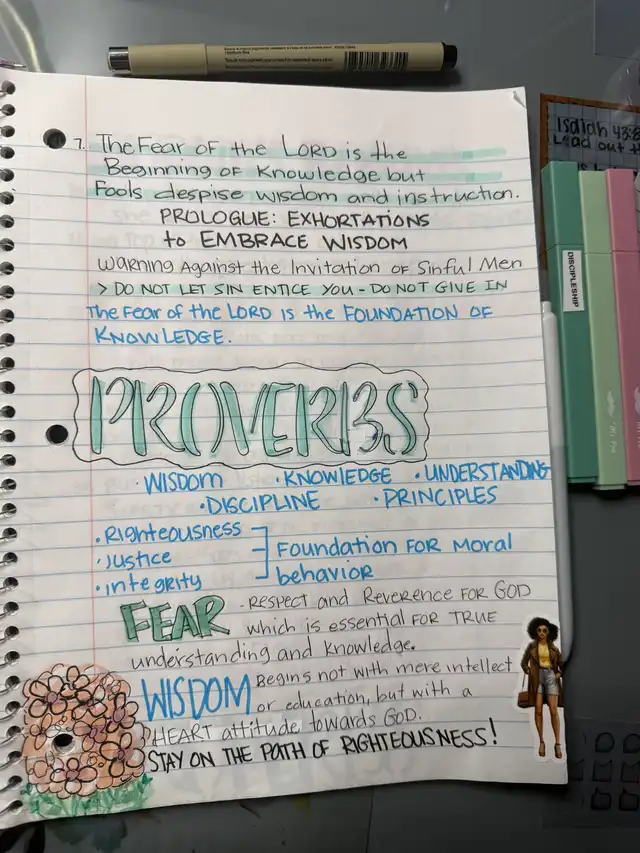 7. The Fear OF the LORD is the
Beginning OF Knowledge but
Fools despise wisdom and instruction.
PROLOGUE: EXHORTATIONS
to EMBRACE WISDOM
Warning Against the Invitation OF Sinful Men
> DO NOT LET SIN ENTICE YOU - DO NOT GIVE IN
The Fear of the LORD is the FOUNDATION OF
KNOWLEDGE.
PROVERBS
· WISDOM · KNOWLEDGE · UNDERSTANDING
· DISCIPLINE · PRINCIPLES
· Righteousness
· Justice
· integrity
Foundation FOR Moral
behavior
FEAR - RESPECT and Reverence FOR GOD
which is essential FOR TRUE
understanding and Knowledge.
WISDOM Begins not with mere intellect
or education, but with a
HEART attitude towards GOD.
STAY ON THE PATH OF RIGHTEOUSNESS!
Isaiah 43:8
Lead out th
DISCIPLESHIP